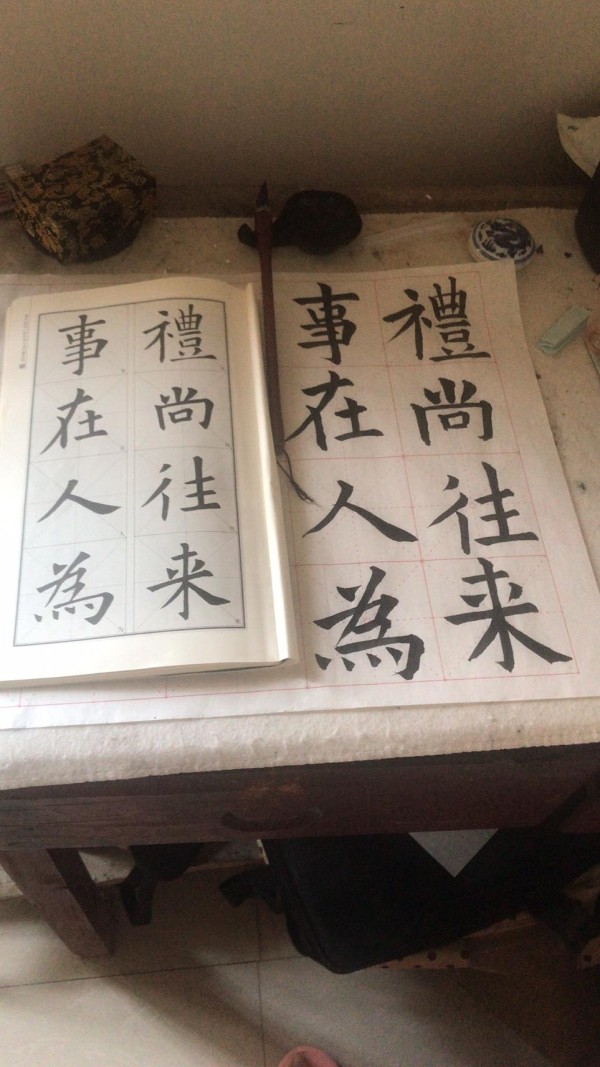 禮尚往来
事在人為
禮尚往来
事在人為